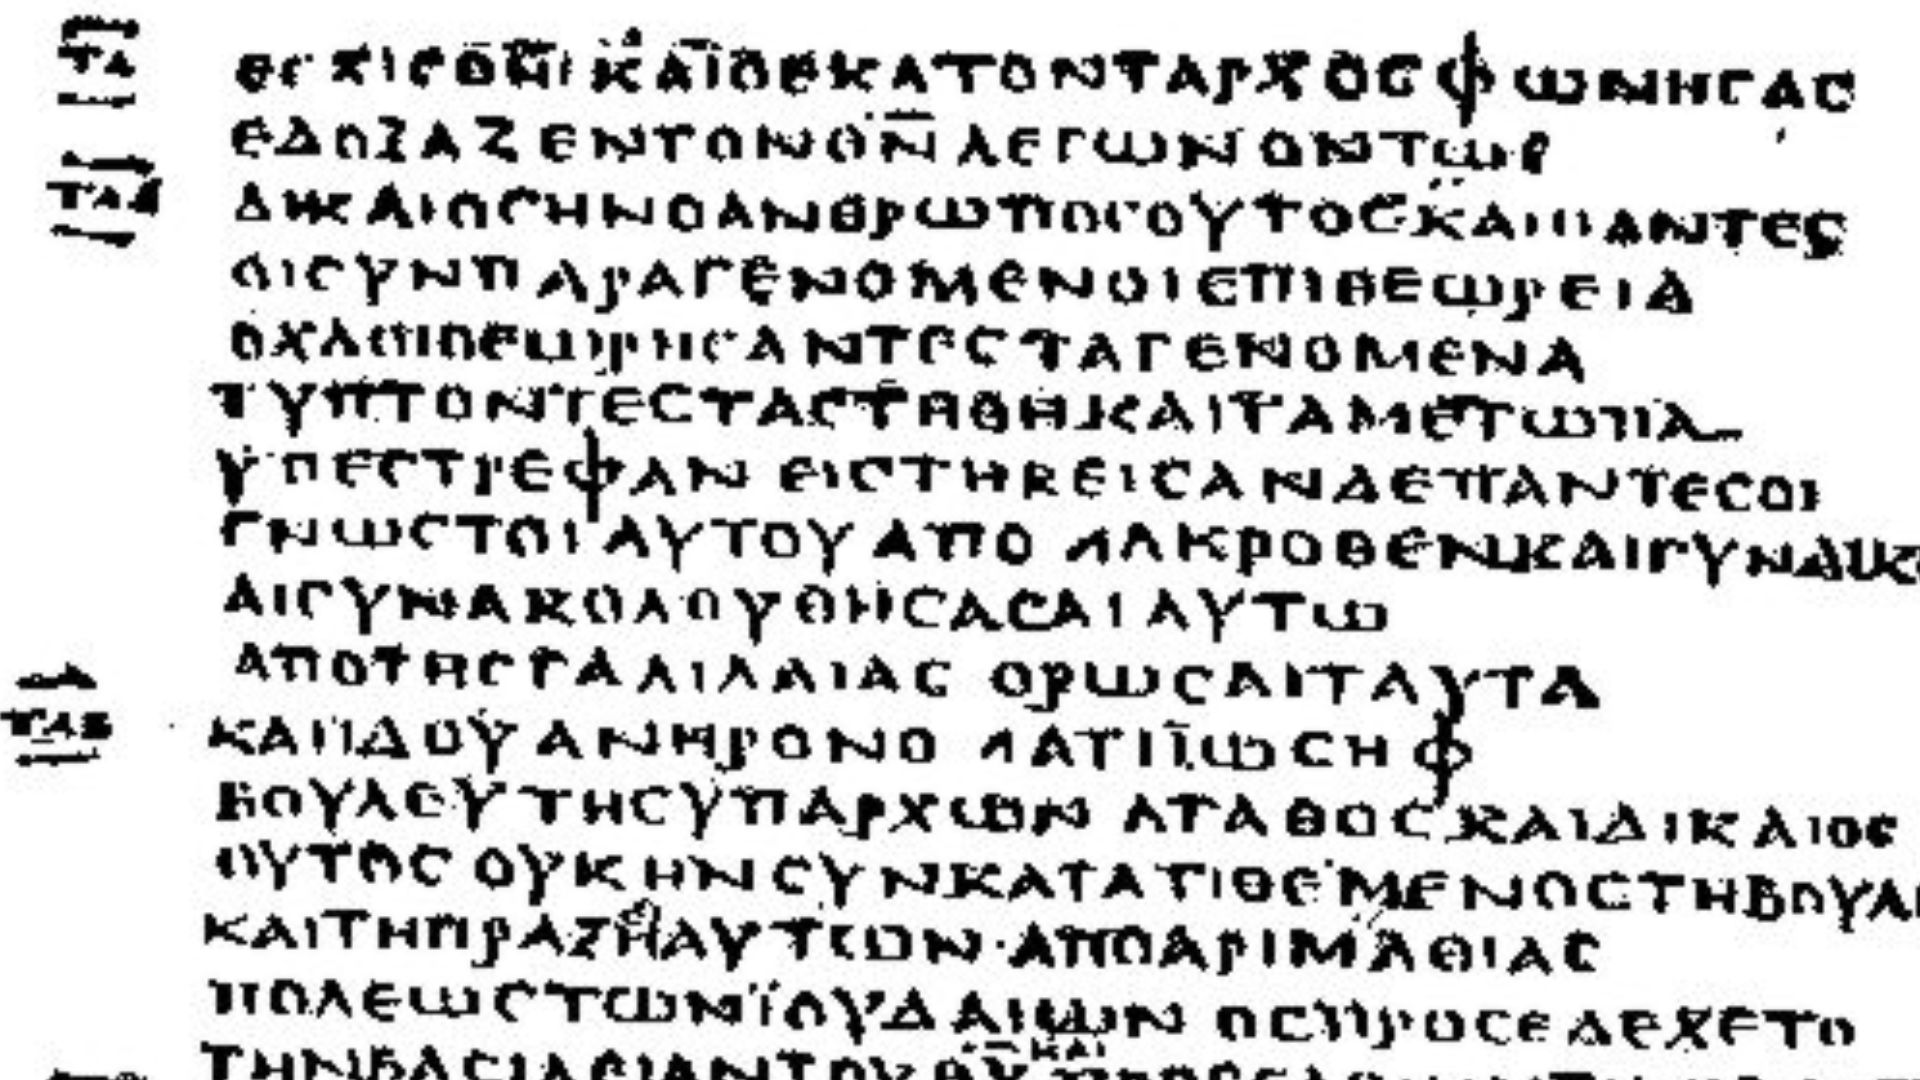 ΕСΧΙСΘΗ ΚΑΙΟΕΚΑΤΟΝΤΑΡΧΟСΦΩΝΗСΑС
ΕΔΟΞΑΖΕΝΤΟΝΘΝ ΛΕΓΩΝΟΝΤΩС
ΔΙΚΑΙΟСΗΝΟΑΝΘΡΩΠΟСΟΥΤΟСΚΑΙΠΑΝΤΕС
ΟΙСΥΝΠΑΡΑΓΕΝΟΜΕΝΟΙΕΠΙΘΕΩΡΕΙΑ
ΟΧΛΟΙΘΕΩΡΗСΑΝΤΕСΤΑΓΕΝΟΜΕΝΑ
ΤΥΠΤΟΝΤΕСΤΑСΤΗΘΗΚΑΙΤΑΜΕΤΩΠΑ
ΥΠΕСΤΡΕΦΑΝ ΕΙСΤΗΚΕΙСΑΝΔΕΠΑΝΤΕСΟΙ
ΓΝΩСΤΟΙΑΥΤΟΥΑΠΟ ΜΑΚΡΟΘΕΝΚΑΙΓΥΝΑΙΚΕ
ΑΙСΥΝΑΚΟΛΟΥΘΗСΑСΑΙΑΥΤΩ
ΑΠΟΤΗСΓΑΛΙΛΑΙΑС ΟΡΩСΑΙΤΑΥΤΑ
ΚΑΙΙΔΟΥΑΝΗΡΟΝΟΜΑΤΙΪΩСΗΦ
ΒΟΥΛΕΥΤΗСΥΠΑΡΧΩΝ ΑΓΑΘΟСΚΑΙΔΙΚΑΙΟС
ΟΥΤΟС ΟΥΚΗΝСΥΝΚΑΤΑΤΙΘΕΜΕΝΟСΤΗΒΟΥΛΗ
ΚΑΙΤΗΠΡΑΞΗΑΥΤΩΝ·ΑΠΟΑΡΙΜΑΘΙΑС
ΠΟΛΕΩСΤΩΝΪΟΥΔΑΙΩΝ ΟСΠΡΟСΕΔΕΧΕΤΟ
ΤΗΝΒΑСΙΛΕΙΑΝΤΟΥΘΥ